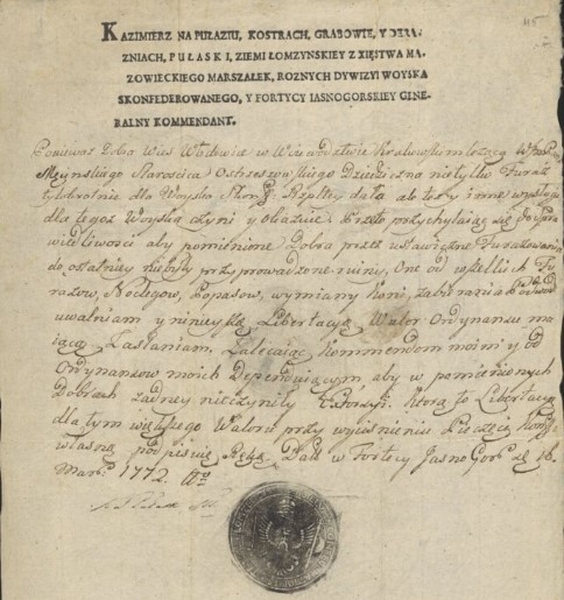 115
KAZIMIERZ NA PUŁAZIU, KOSTRACH, GRABOWIE, Y DERA-
ZNIACH, PUŁASKI, ZIEMI ŁOMZYNSKIEY Z XIĘSTWA MA-
ZOWIECKIEGO MARSZAŁEK, ROZNYCH DYWIZYI WOYSKA
SKONFEDEROWANEGO, Y FORTYCY IASNOGORSKIEY GENE-
RALNY KOMMENDANT.
Poniewaz Dobra Wies Włodowice w Woiewodztwie Krakowskim lezącą
Męcinskiego Starosty Ostrzeszowskiego Dziedziczna nietylko Furaz
tylokrotnie dla Woyska Skonf: Rzpltey dała ale tez y inne wysługi
dla tegoz Woyska czyni y okazuie. Przeto przychylaiąc się do spra
wiedliwosci aby pomienione Dobra przez ustawiczne Furazowania
do ostatniey niebyły przyprowadzone ruiny, One od wszelkich Fu
razow, Noclegow, Popasow, wymiany koni, zabierania
uwalniam y ninieyszą Libertacyą Walor Ordynansu ma
iącą Zasłaniam, Zalecaiąc Kommendom moim y od
Ordynansow moich Dependuiącym, aby w pomienionych
Dobrach zadney nieczyniły Extorsyi. Ktorą to Libertacyą
dla tym większego Waloru przy wycisnieniu Pieczęci Konfn
własną podpisuię Ręką. Datt w Fortecy JasnoGors: d. 16.
Mar: 1772.